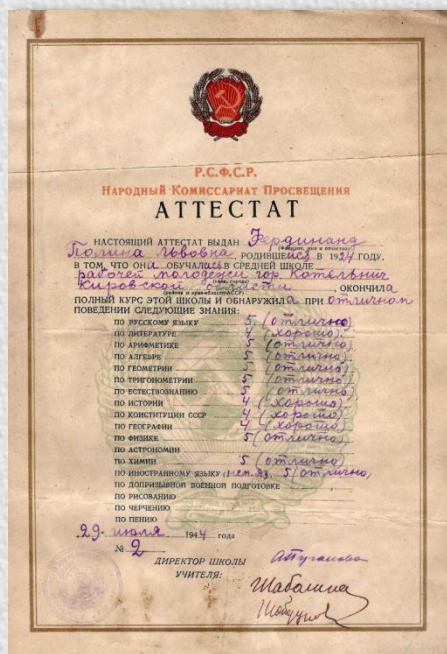 Р.С.Ф.С.Р.
НАРОДНЫЙ КОМИССАРИАТ ПРОСВЕЩЕНИЯ
АТТЕСТАТ
НАСТОЯЩИЙ АТТЕСТАТ ВЫДАН Фердинанд
(фамилия, имя и отчество)
Полина Львовна, РОДИВШЕЙСЯ В 1924 ГОДУ,
В ТОМ, ЧТО ОНА ОБУЧАЛАСЬ В СРЕДНЕЙ ШКОЛЕ
рабочей молодежи гор Котельнич
Кировской области, ОКОНЧИЛА
ПОЛНЫЙ КУРС ЭТОЙ ШКОЛЫ И ОБНАРУЖИЛА ПРИ отличном
ПОВЕДЕНИИ СЛЕДУЮЩИЕ ЗНАНИЯ:
ПО РУССКОМУ ЯЗЫКУ 5 (отлично)
ПО ЛИТЕРАТУРЕ 4 (хорошо)
ПО АРИФМЕТИКЕ 5 (отлично)
ПО АЛГЕБРЕ 5 (отлично)
ПО ГЕОМЕТРИИ 5 (отлично)
ПО ТРИГОНОМЕТРИИ 5 (отлично)
ПО ЕСТЕСТВОЗНАНИЮ 5 (отлично)
ПО ИСТОРИИ 4 (хорошо)
ПО КОНСТИТУЦИИ СССР 4 (хорошо)
ПО ГЕОГРАФИИ 4 (хорошо)
ПО ФИЗИКЕ 5 (отлично)
ПО АСТРОНОМИИ
ПО ХИМИИ 5 (отлично)
ПО ИНОСТРАННОМУ ЯЗЫКУ (нем. яз. 5 (отлично)
ПО ДОПРИЗЫВНОЙ ВОЕННОЙ ПОДГОТОВКЕ
ПО РИСОВАНИЮ
ПО ЧЕРЧЕНИЮ
ПО ПЕНИЮ
29 июля 1944 года
№ 2
ДИРЕКТОР ШКОЛЫ
УЧИТЕЛЯ: Шабалина